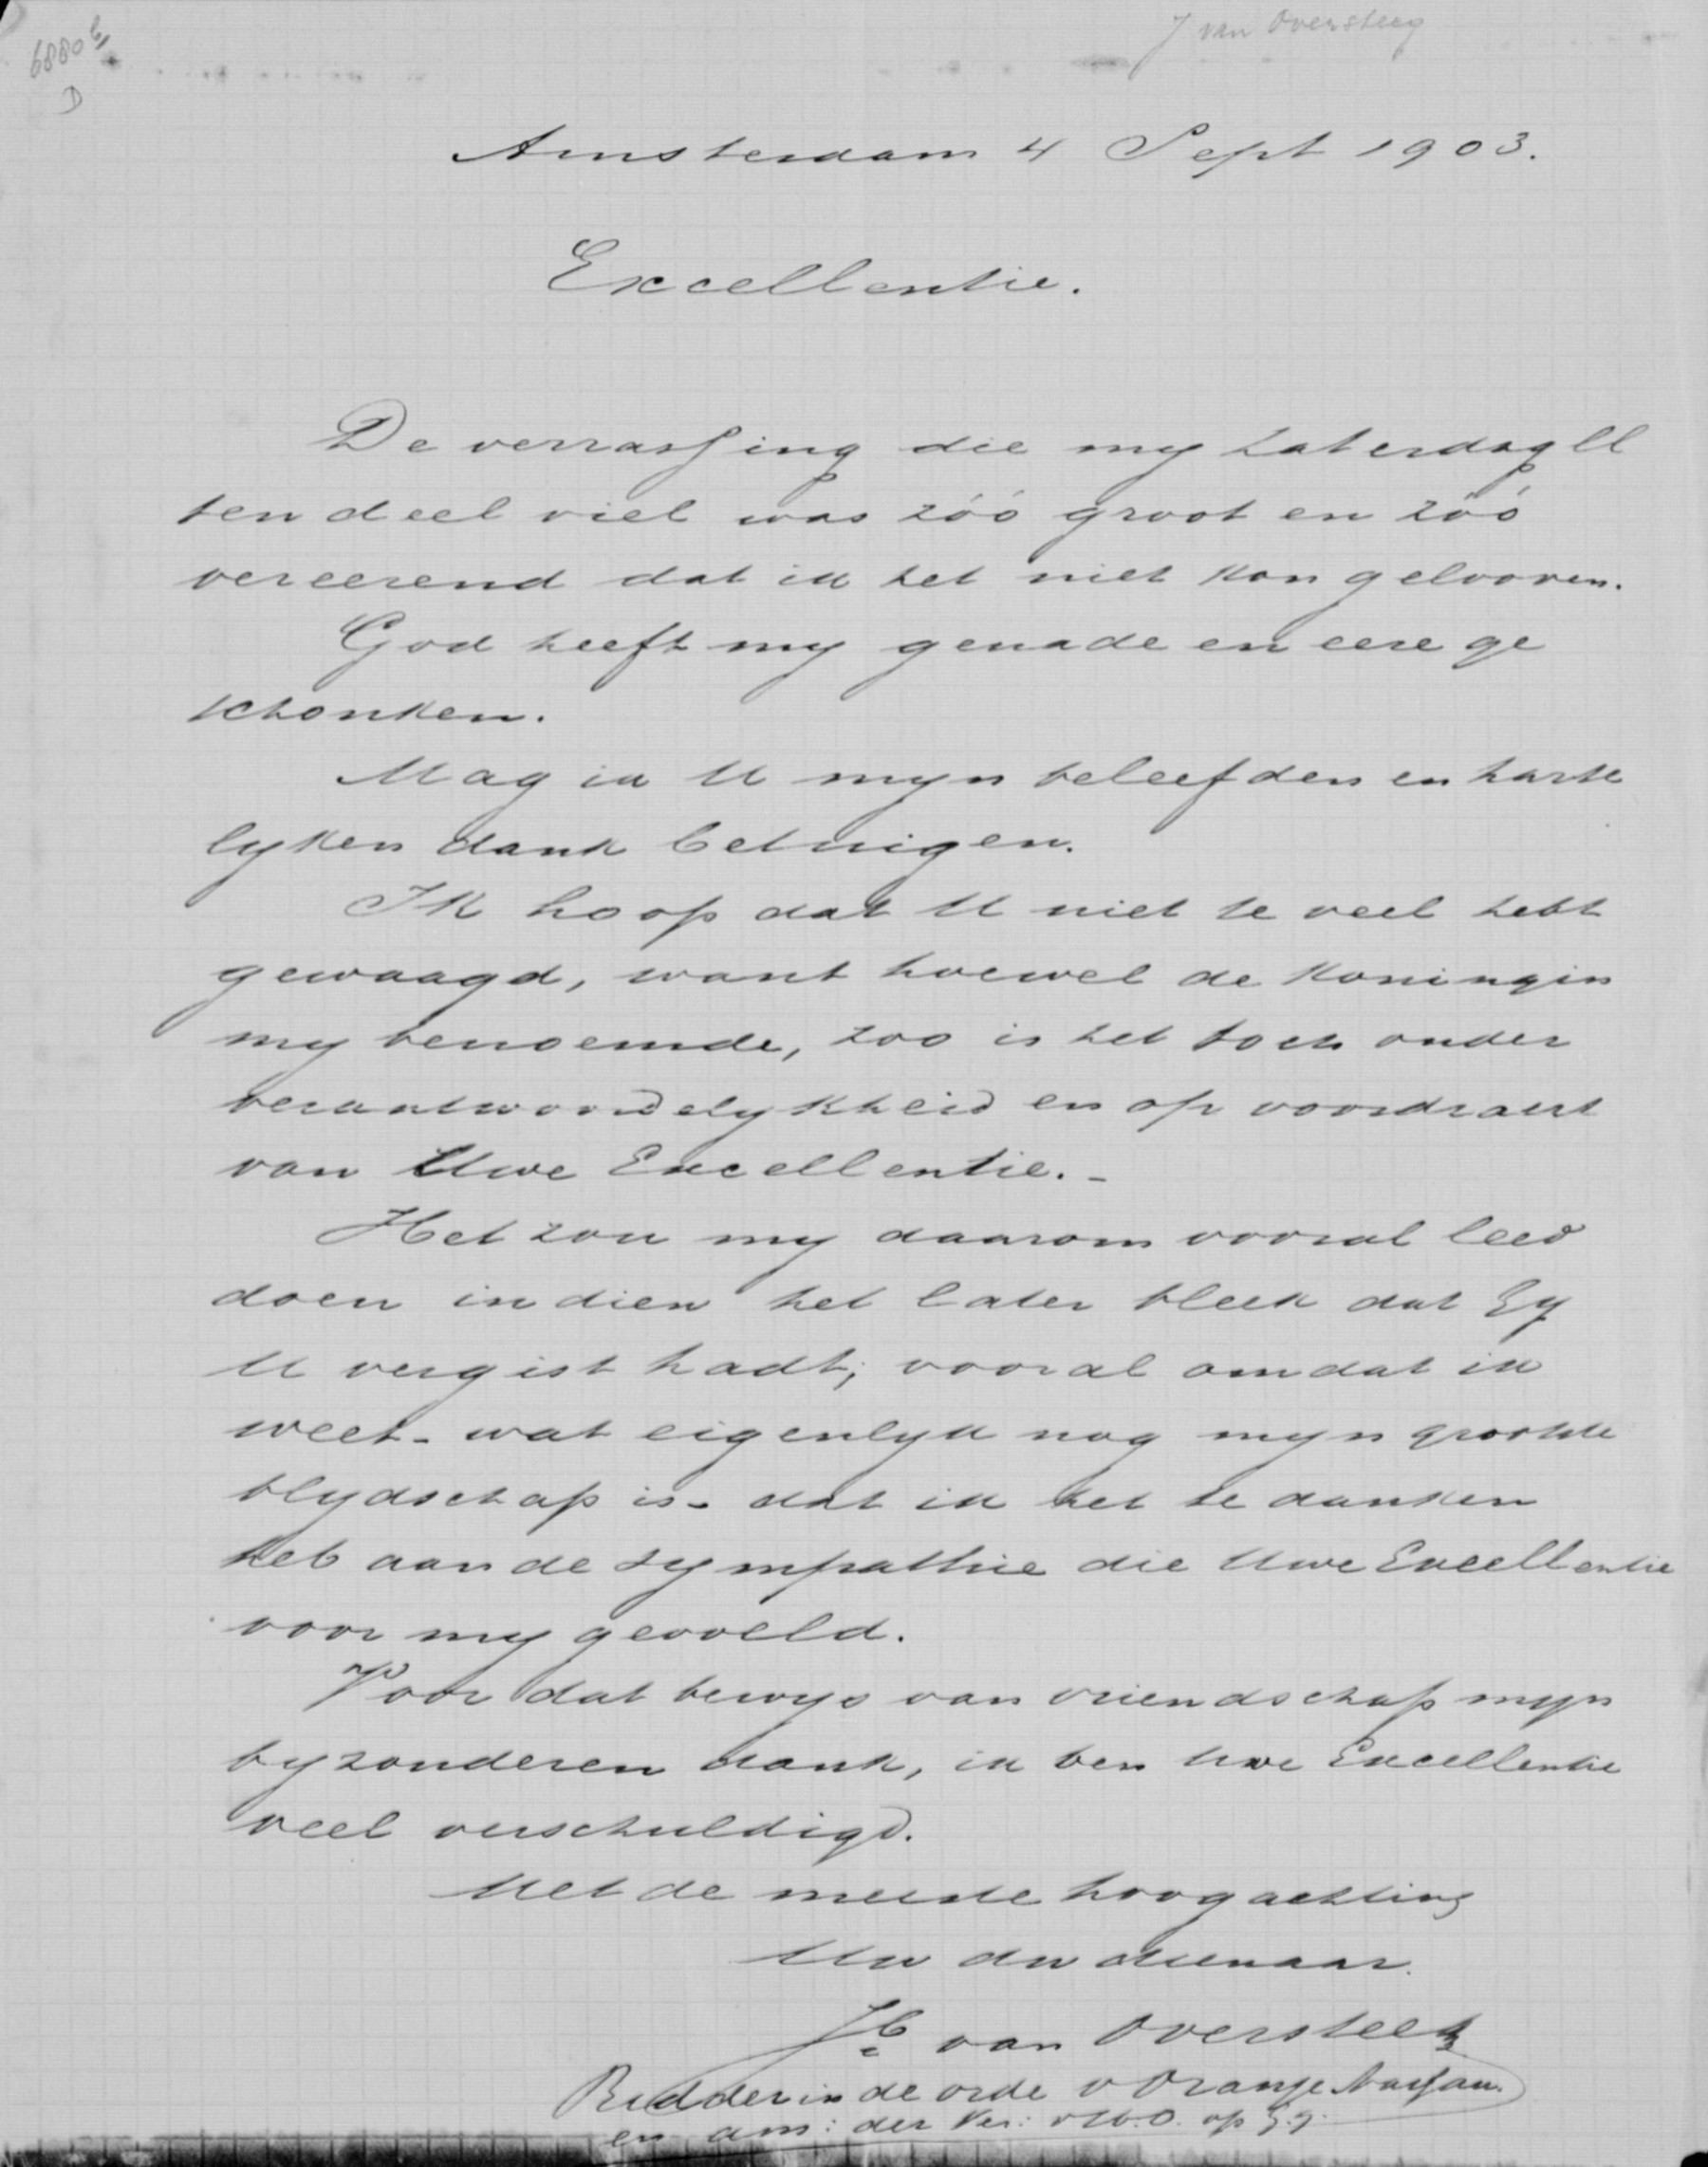 J van Oversteeg
6880 b
D
Amsterdam 4 Sept 1903.
Excellentie.
De verrassing die my Zaterdag ll
ten deel viel was zóó groot en zóó
vereerend dat ik het niet kon gelooven.
God heeft my genade en eere ge
schonken.
Mag ik U myn beleefden en harte
lyken dank betuigen.
Ik hoop dat U niet te veel hebt
gewaagd, want hoewel de Koningin
my benoemde, zoo is het toch onder
verantwoordelykheid en op voordracht
van Uwe Excellentie. -
Het zou my daarom vooral leed
doen indien het later bleek dat Gy
U vergist hadt; vooral omdat ik
weet - wat eigenlyk nog myn grootste
blydschap is - dat ik het te danken
heb aan de sympathie die Uwe Excellentie
voor my gevoeld.
Voor dat bewys van vriendschap myn
byzonderen dank, ik ben Uwe Excellentie
veel verschuldigd.
Met de meeste hoogachting
Uw dw dienaar.
Jb van Oversteeg
Ridder in de orde v Oranje Nassau.
en am: der Ver: v W.O. op g.g.